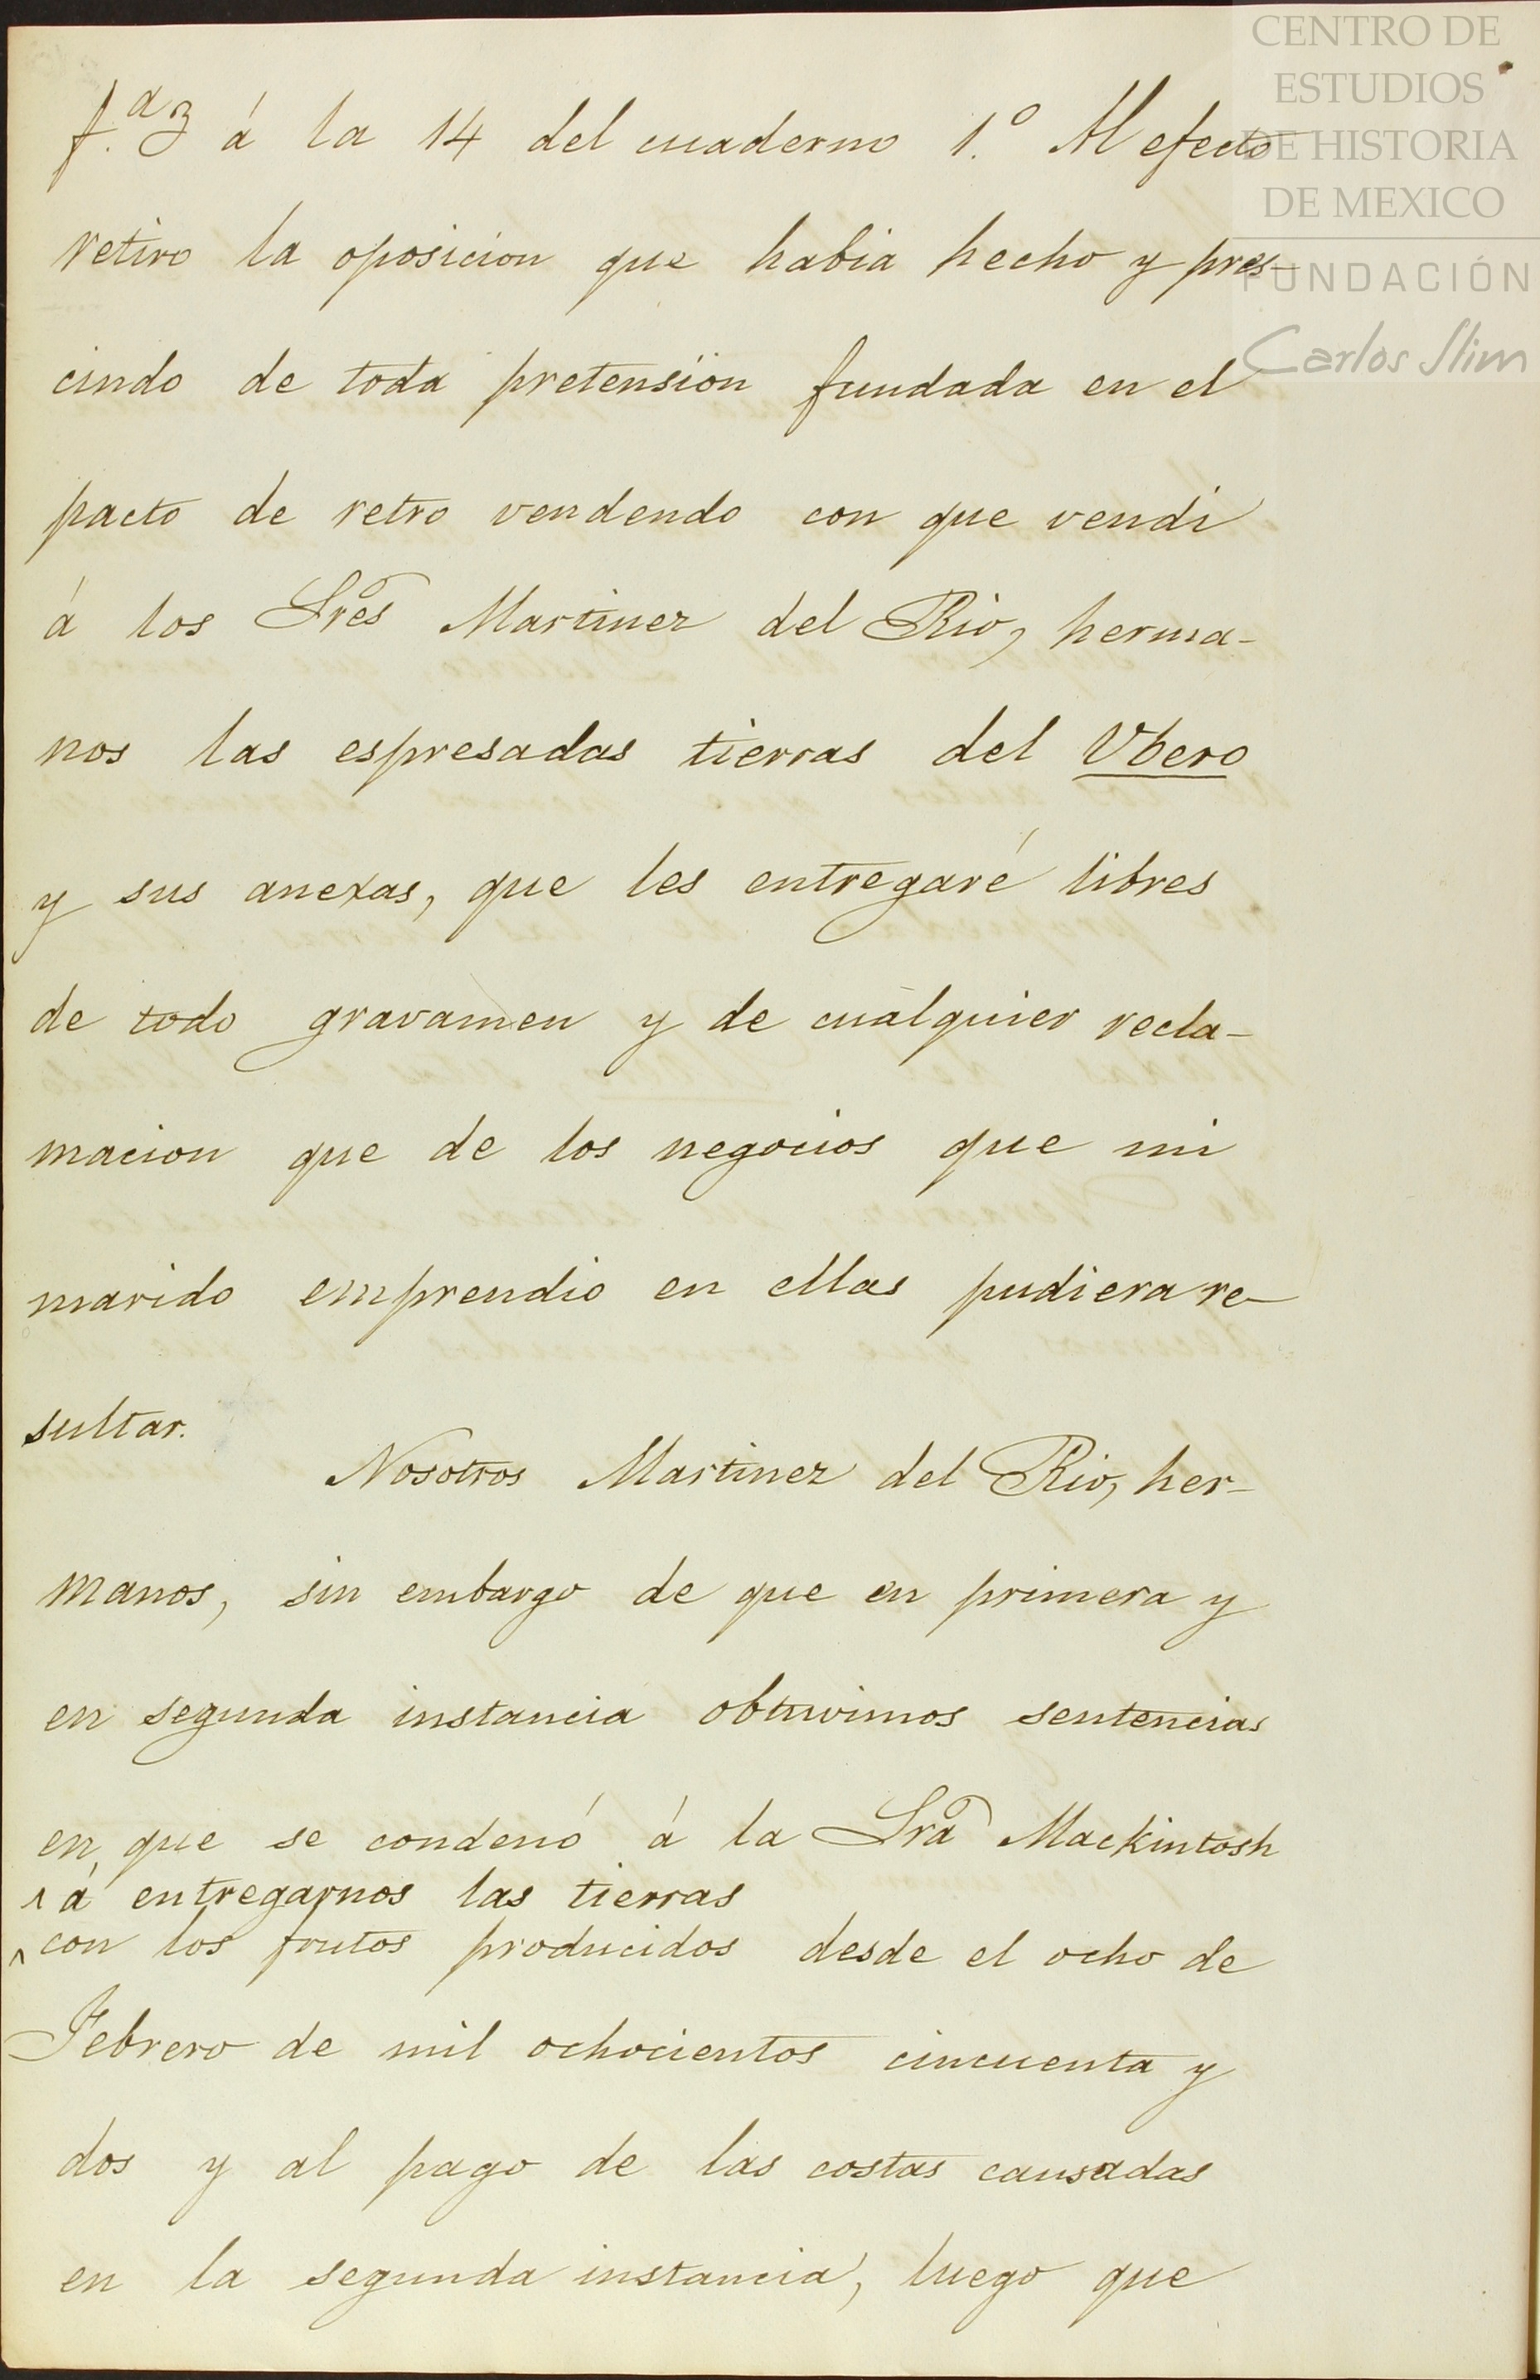 CENTRO DE
ESTUDIOS
DE HISTORIA
DE MEXICO
FUNDACIÓN
Carlos Slim
f.az á la 14 del cuaderno 1.º Al efecto
retiro la oposicion que habia hecho y pres-
cindo de toda pretension fundada en el
pacto de retro vendendo con que vendi
á los Sres Martinez del Rio, herma-
nos las espresadas tierras del Vbero
y sus anexas, que les entregaré libres
de todo gravamen y de cualquier recla-
macion que de los negocios que mi
marido emprendio en ellas pudiera re-
sultar.
Nosotros Martinez del Rio, her-
manos, sin embargo de que en primera y
en segunda instancia obtuvimos sentencias
en que se condenó á la Sra Mackintosh
^ á entregarnos las tierras
^ con los frutos producidos desde el ocho de
Febrero de mil ochocientos cincuenta y
dos y al pago de las costas causadas
en la segunda instancia, luego que